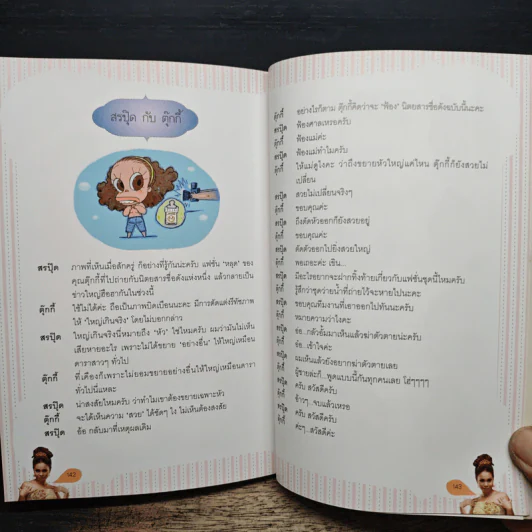 สรปุ๊ด กับ ตุ๊กกี้
สรปุ๊ด ภาพที่เห็นเมื่อสักครู่ ก็อย่างที่รู้กันนะครับ แฟชั่น 'หลุด' ของ
คุณตุ๊กกี้ที่ไปถ่ายกับนิตยสารชื่อดังแห่งหนึ่ง แล้วกลายเป็น
ข่าวใหญ่ฮือฮากันในช่วงนี้
ตุ๊กกี้ ใช่ไม่ได้ค่ะ ถือเป็นภาพบิดเบือนนะคะ มีการตัดแต่งรีทัชภาพ
ให้ 'ใหญ่เกินจริง' โดยไม่บอกกล่าว
สรปุ๊ด ใหญ่เกินจริงนี่หมายถึง 'หัว' ใช่ไหมครับ ผมว่ามันไม่เห็น
เสียหายอะไร เพราะไม่ได้ขยาย 'อย่างอื่น' ให้ใหญ่เหมือน
ดาราสาวๆ ทั่วไป
ตุ๊กกี้ ที่เคืองก็เพราะไม่ยอมขยายอย่างอื่นให้ใหญ่เหมือนดารา
ทั่วไปนี่แหละ
สรปุ๊ด น่าสงสัยไหมครับ ว่าทำไมเขาต้องขยายเฉพาะหัว
ตุ๊กกี้ จะได้เห็นความ 'สวย' ได้ชัดๆ ไง ไม่เห็นต้องสงสัย
สรปุ๊ด อ้อ กลับมาที่เหตุผลเดิม
142
ตุ๊กกี้ อย่างไรก็ตาม ตุ๊กกี้คิดว่าจะ 'ฟ้อง' นิตยสารชื่อดังฉบับนี้นะคะ
สรปุ๊ด ฟ้องศาลเหรอครับ
ตุ๊กกี้ ฟ้องแม่ค่ะ
สรปุ๊ด ฟ้องแม่ทำไมครับ
ตุ๊กกี้ ให้แม่ดูไงคะ ว่าถึงขยายหัวใหญ่แค่ไหน ตุ๊กกี้ก็ยังสวยไม่
เปลี่ยน
สรปุ๊ด สวยไม่เปลี่ยนจริงๆ
ตุ๊กกี้ ขอบคุณค่ะ
สรปุ๊ด ถึงตัดหัวออกก็ยังสวยอยู่
ตุ๊กกี้ ขอบคุณค่ะ
สรปุ๊ด ตัดตัวออกไปยิ่งสวยใหญ่
ตุ๊กกี้ พอเถอะค่ะ เขิน...
สรปุ๊ด มีอะไรอยากจะฝากทิ้งท้ายเกี่ยวกับแฟชั่นชุดนี้ไหมครับ
ตุ๊กกี้ รู้สึกว่าชุดว่ายน้ำที่ถ่ายไว้จะหายไปนะคะ
สรปุ๊ด ขอบคุณทีมงานที่เอาออกไปทันนะครับ
ตุ๊กกี้ หมายความว่าไงคะ
สรปุ๊ด อ๋อ..กลัวยิ้มมาเห็นแล้วฆ่าตัวตายน่ะครับ
ตุ๊กกี้ อ๋อ.. เข้าใจค่ะ
สรปุ๊ด ผมเห็นแล้วยังอยากฆ่าตัวตายเลย
ตุ๊กกี้ ผู้ชายล่ะก็...พูดแบบนี้กันทุกคนเลย โฮ่ๆๆๆๆ
สรปุ๊ด ครับ สวัสดีครับ
ตุ๊กกี้ อ้าวๆ..จบแล้วเหรอ
สรปุ๊ด ครับ สวัสดีครับ
ตุ๊กกี้ ค่ะๆ...สวัสดีค่ะ
143